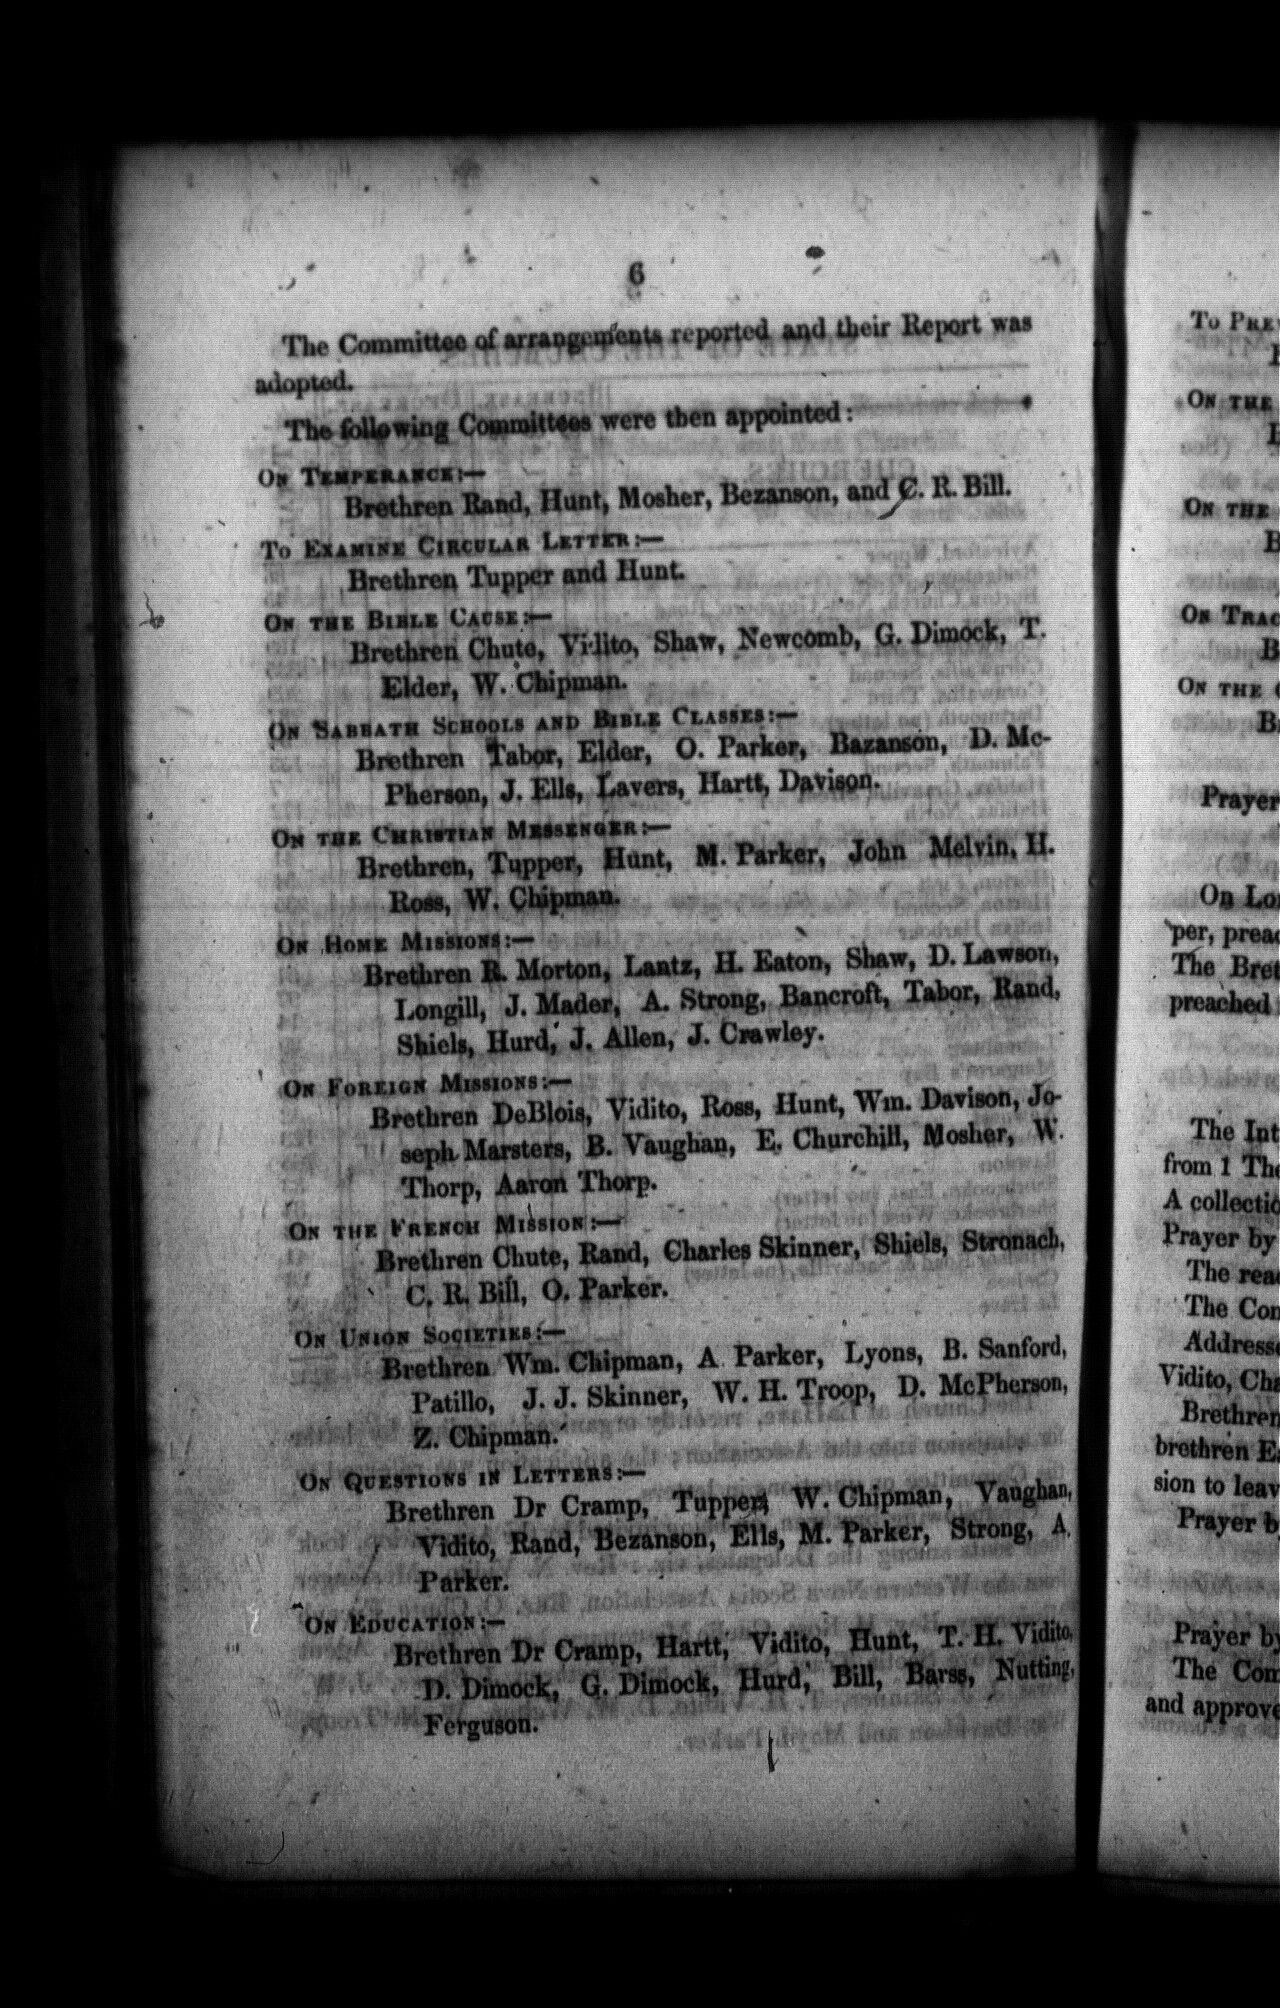 6
The Committee of arrangements reported and their Report was
adopted.
The following Committees were then appointed:
ON TEMPERANCE:—
Brethren Rand, Hunt, Mosher, Bezanson, and C. R. Bill.
TO EXAMINE CIRCULAR LETTER:—
Brethren Tupper and Hunt.
ON THE BIBLE CAUSE:—
Brethren Chute, Vidito, Shaw, Newcomb, G. Dimock, T.
Elder, W. Chipman.
ON SABBATH SCHOOLS AND BIBLE CLASSES:—
Brethren Tabor, Elder, O. Parker, Bazanson, D. Mc-
Pherson, J. Ells, Lavers, Hartt, Davison.
ON THE CHRISTIAN MESSENGER:—
Brethren, Tupper, Hunt, M. Parker, John Melvin, H.
Ross, W. Chipman.
ON HOME MISSIONS:—
Brethren R. Morton, Lantz, H. Eaton, Shaw, D. Lawson,
Longill, J. Mader, A. Strong, Bancroft, Tabor, Rand,
Shiels, Hurd, J. Allen, J. Crawley.
ON FOREIGN MISSIONS:—
Brethren DeBlois, Vidito, Ross, Hunt, Wm. Davison, Jo-
seph Marsters, B. Vaughan, E. Churchill, Mosher, W.
Thorp, Aaron Thorp.
ON THE FRENCH MISSION:—
Brethren Chute, Rand, Charles Skinner, Shiels, Stronach,
C. R. Bill, O. Parker.
ON UNION SOCIETIES:—
Brethren Wm. Chipman, A. Parker, Lyons, B. Sanford,
Patillo, J. J. Skinner, W. H. Troop, D. McPherson,
Z. Chipman.
ON QUESTIONS IN LETTERS:—
Brethren Dr Cramp, Tupper, W. Chipman, Vaughan,
Vidito, Rand, Bezanson, Ells, M. Parker, Strong, A.
Parker.
ON EDUCATION:—
Brethren Dr Cramp, Hartt, Vidito, Hunt, T. H. Vidito,
D. Dimock, G. Dimock, Hurd, Bill, Barss, Nutting,
Ferguson.
TO
ON THE
ON THE
ON
ON THE
Prayer
On
per,
The
preached
The
from 1
A
Prayer by
The
The
Vidito,
Brethren
brethren
sion to
Prayer
Prayer by
The
and